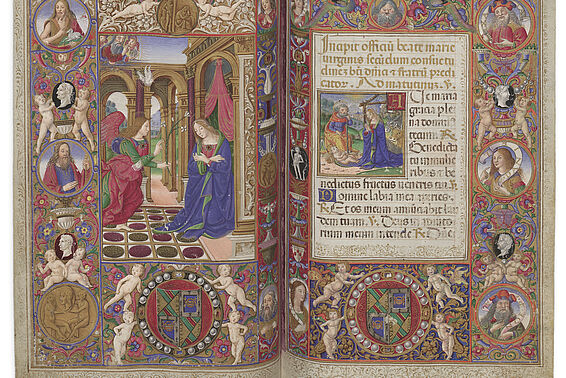 Incipit officiū beate marie
virginis secūdum consuetu
dinez & fratrū predi
cator. Ad matutinuz. V.
Ave maria
gratia ple
na dominus
tecum. R
Benedicta
tu in mulie
ribus & be
nedictus fructus ventris tui. V
Domine labia mea aperies.
R Et os meum annūciabit lau
dem tuam. V Deus in adiuto
rium meum intende. R